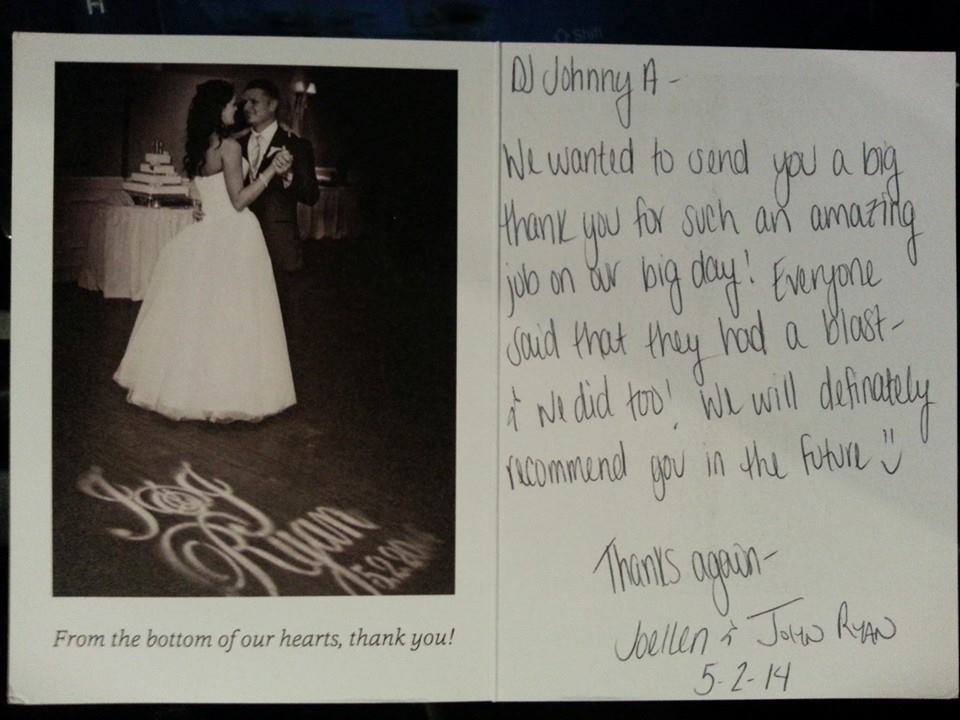 Shift
DJ Johnny A -
We wanted to send you a big
thank you for such an amazing
job on our big day! Everyone
said that they had a blast -
& we did too! We will definately
recommend you in the future
Thanks again -
Joellen & JOHN RYAN
5-2-14
J & J
Ryan
From the bottom of our hearts, thank you!